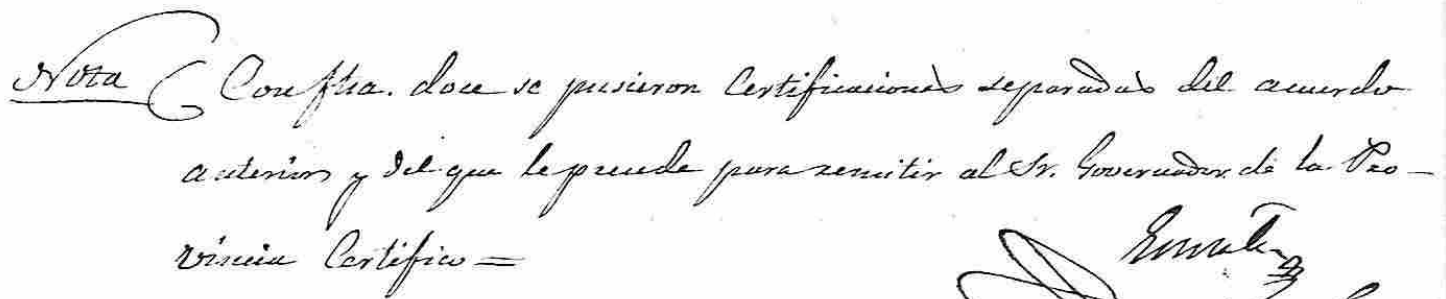 Nota Con fha. doce se pusieron Certificaciones separadas del acuerdo
anterior y del que le precede para remitir al Sr. Governador de la Pro-
vincia Certifico =